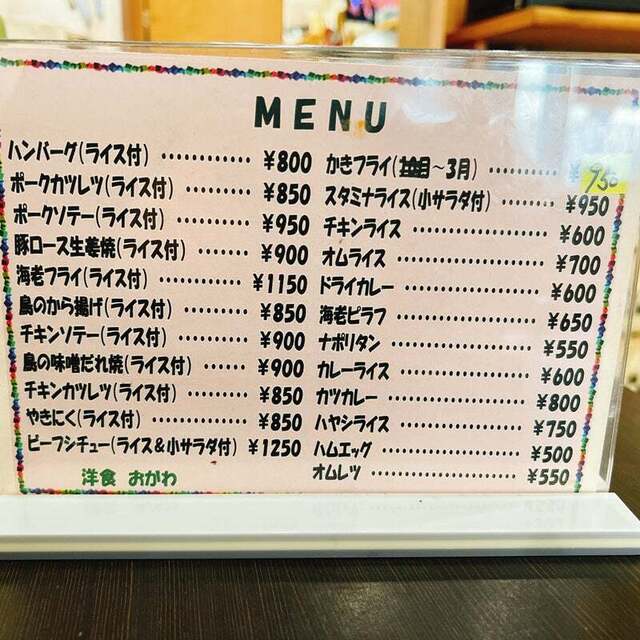 MENU
ハンバーグ(ライス付) ············ ¥800
ポークカツレツ(ライス付) ········ ¥850
ポークソテー(ライス付) ·········· ¥950
豚ロース生姜焼(ライス付) ······· ¥900
海老フライ(ライス付) ············ ¥1150
鳥のから揚げ(ライス付) ·········· ¥850
チキンソテー(ライス付) ·········· ¥900
鳥の味噌だれ焼(ライス付) ······· ¥900
チキンカツレツ(ライス付) ········ ¥850
やきにく(ライス付) ·············· ¥850
ビーフシチュー(ライス&小サラダ付) ¥1250
洋食 おがわ
かきフライ(~3月) ············ ¥950
スタミナライス(小サラダ付) ······ ¥950
チキンライス ···················· ¥600
オムライス ······················ ¥700
ドライカレー ···················· ¥600
海老ピラフ ······················ ¥650
ナポリタン ······················ ¥550
カレーライス ···················· ¥600
カツカレー ······················ ¥800
ハヤシライス ···················· ¥750
ハムエッグ ······················ ¥500
オムレツ ························ ¥550